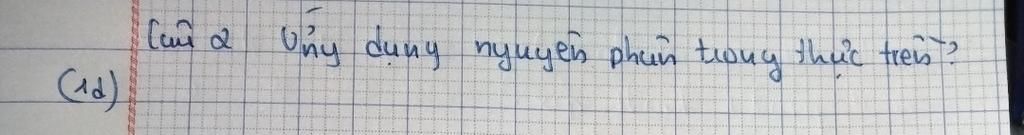 Câu 2 Ứng dụng nguyên phân trong thực tiễn?
(1đ)